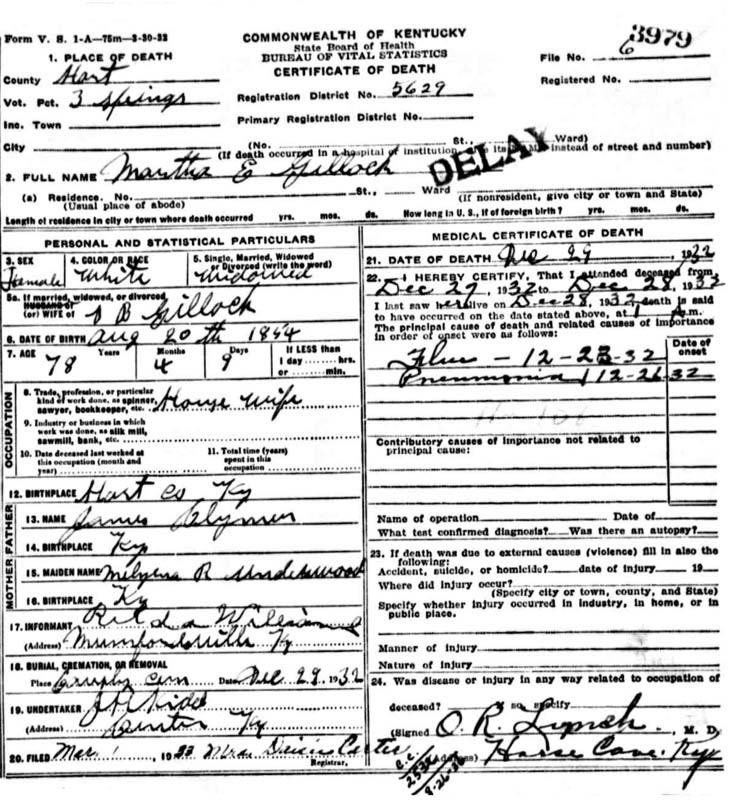 Form V. S. 1-A—75m—3-30-32
COMMONWEALTH OF KENTUCKY
State Board of Health
BUREAU OF VITAL STATISTICS
CERTIFICATE OF DEATH
File No. 3979
6
Registered No.
1. PLACE OF DEATH
County Hart
Vot. Pct. 3 Springs
Inc. Town
City
Registration District No. 5629
Primary Registration District No.
(No. St., Ward)
(If death occurred in a hospital or institution, its instead of street and number)
DELAY
2. FULL NAME Martha E Gilloch
(a) Residence. No. St., Ward
(Usual place of abode) (If nonresident, give city or town and State)
Length of residence in city or town where death occurred yrs. mos. ds. How long in U. S., if of foreign birth? yrs. mos. ds.
PERSONAL AND STATISTICAL PARTICULARS
3. SEX 4. COLOR OR RACE 5. Single, Married, Widowed or Divorced (write the word)
Female White Widowed
5a. If married, widowed, or divorced, HUSBAND of
(or) WIFE of B Gilloch
6. DATE OF BIRTH Aug 20th 1854
7. AGE Years Months Days If LESS than 1 day hrs. or min.
78 4 9
OCCUPATION
8. Trade, profession, or particular kind of work done, as spinner, sawyer, bookkeeper, etc. House wife
9. Industry or business in which work was done, as silk mill, sawmill, bank, etc.
10. Date deceased last worked at this occupation (month and year)
11. Total time (years) spent in this occupation
12. BIRTHPLACE Hart Co Ky
FATHER
13. NAME James Clymer
14. BIRTHPLACE Ky
MOTHER
15. MAIDEN NAME R Underwood
16. BIRTHPLACE Ky
17. INFORMANT Williams
(Address) Munfordville Ky
18. BURIAL, CREMATION, OR REMOVAL
Place Cem Date Dec 29 1932
19. UNDERTAKER
(Address) Center Ky
20. FILED Mar 1 1933 Mrs Carter
Registrar.
MEDICAL CERTIFICATE OF DEATH
21. DATE OF DEATH Dec 29 1932
22. I HEREBY CERTIFY, That I attended deceased from
Dec 27, 1932 to Dec 28, 1932
I last saw her alive on Dec 28, 1932 death is said
to have occurred on the date stated above, at 1 A.m.
The principal cause of death and related causes of importance
in order of onset were as follows:
Date of onset
Flu - 12-23-32
Pneumonia 12-26-32
Contributory causes of importance not related to
principal cause:
Name of operation Date of
What test confirmed diagnosis? Was there an autopsy?
23. If death was due to external causes (violence) fill in also the
following:
Accident, suicide, or homicide? date of injury 19
Where did injury occur?
(Specify city or town, county, and State)
Specify whether injury occurred in industry, in home, or in
public place.
Manner of injury
Nature of injury
24. Was disease or injury in any way related to occupation of
deceased? If so, specify
(Signed O. R. Lynch, M. D.
(Address) Horse Cave, Ky